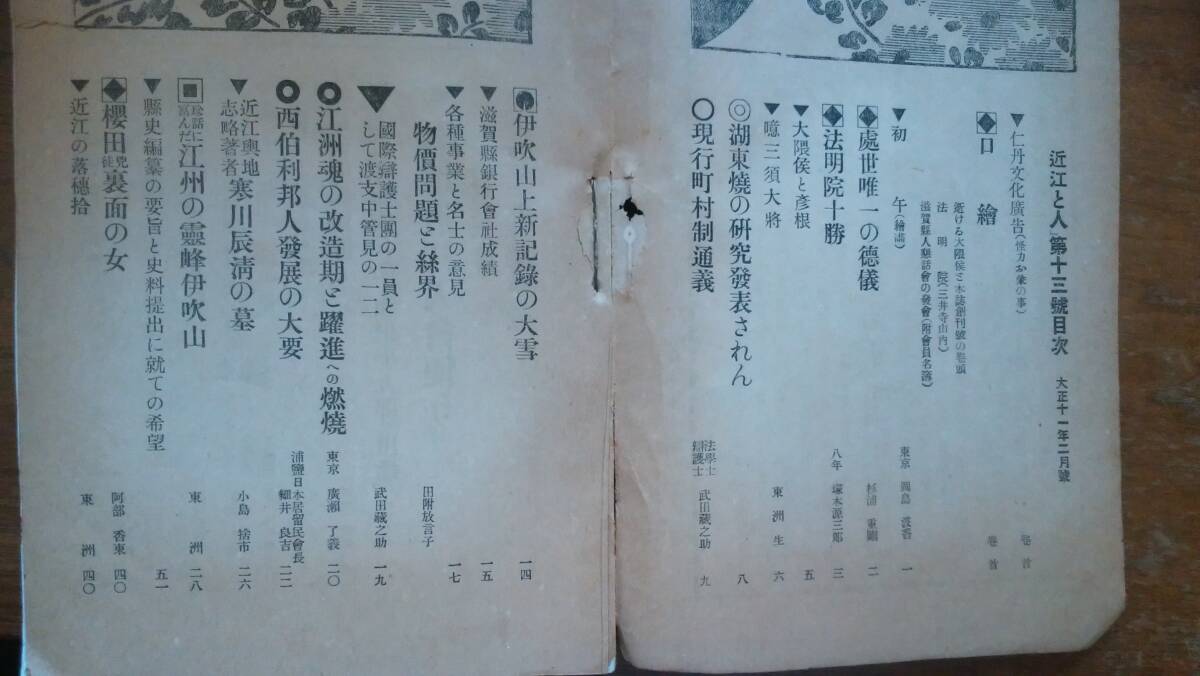 近江と人 第十三號目次 大正十一年二月號
▼仁丹文化廣告(怪力お兼の事) 卷首
◆口繪 卷首
逝ける大隈侯と本誌創刊號の卷頭
法明院(三井寺山內)
滋賀縣人懇話會の發會(附會員名簿)
▼初午(繪畵) 東京 一
◆處世唯一の德儀 杉浦重剛 二
◆法明院十勝 八年 塚本源三郎 三
▼大隈侯と彦根 五
▼噫三須大將 東洲生 六
◎湖東燒の硏究發表されん 八
○現行町村制通義 法學士 辯護士 武田藏之助 九
伊吹山上新記錄の大雪 一四
▼滋賀縣銀行會社成績 一五
▼各種事業と名士の意見 一七
物價問題と絲界 田附放言子
▼國際辯護士團の一員として渡支中管見の一二 武田藏之助 一九
江洲魂の改造期と躍進への燃燒 東京 廣瀨了義 二〇
西伯利邦人發展の大要 浦鹽日本居留民會長 堀井良吉 二二
▼近江輿地志略著者 寒川辰淸の墓 小島捨市 二六
■珍話に富んだ江州の靈峰伊吹山 東洲 二八
▼縣史編纂の要旨と史料提出に就ての希望 五一
◆櫻田兇徒裏面の女 阿部香東 四〇
▼近江の落穗拾 東洲 四〇